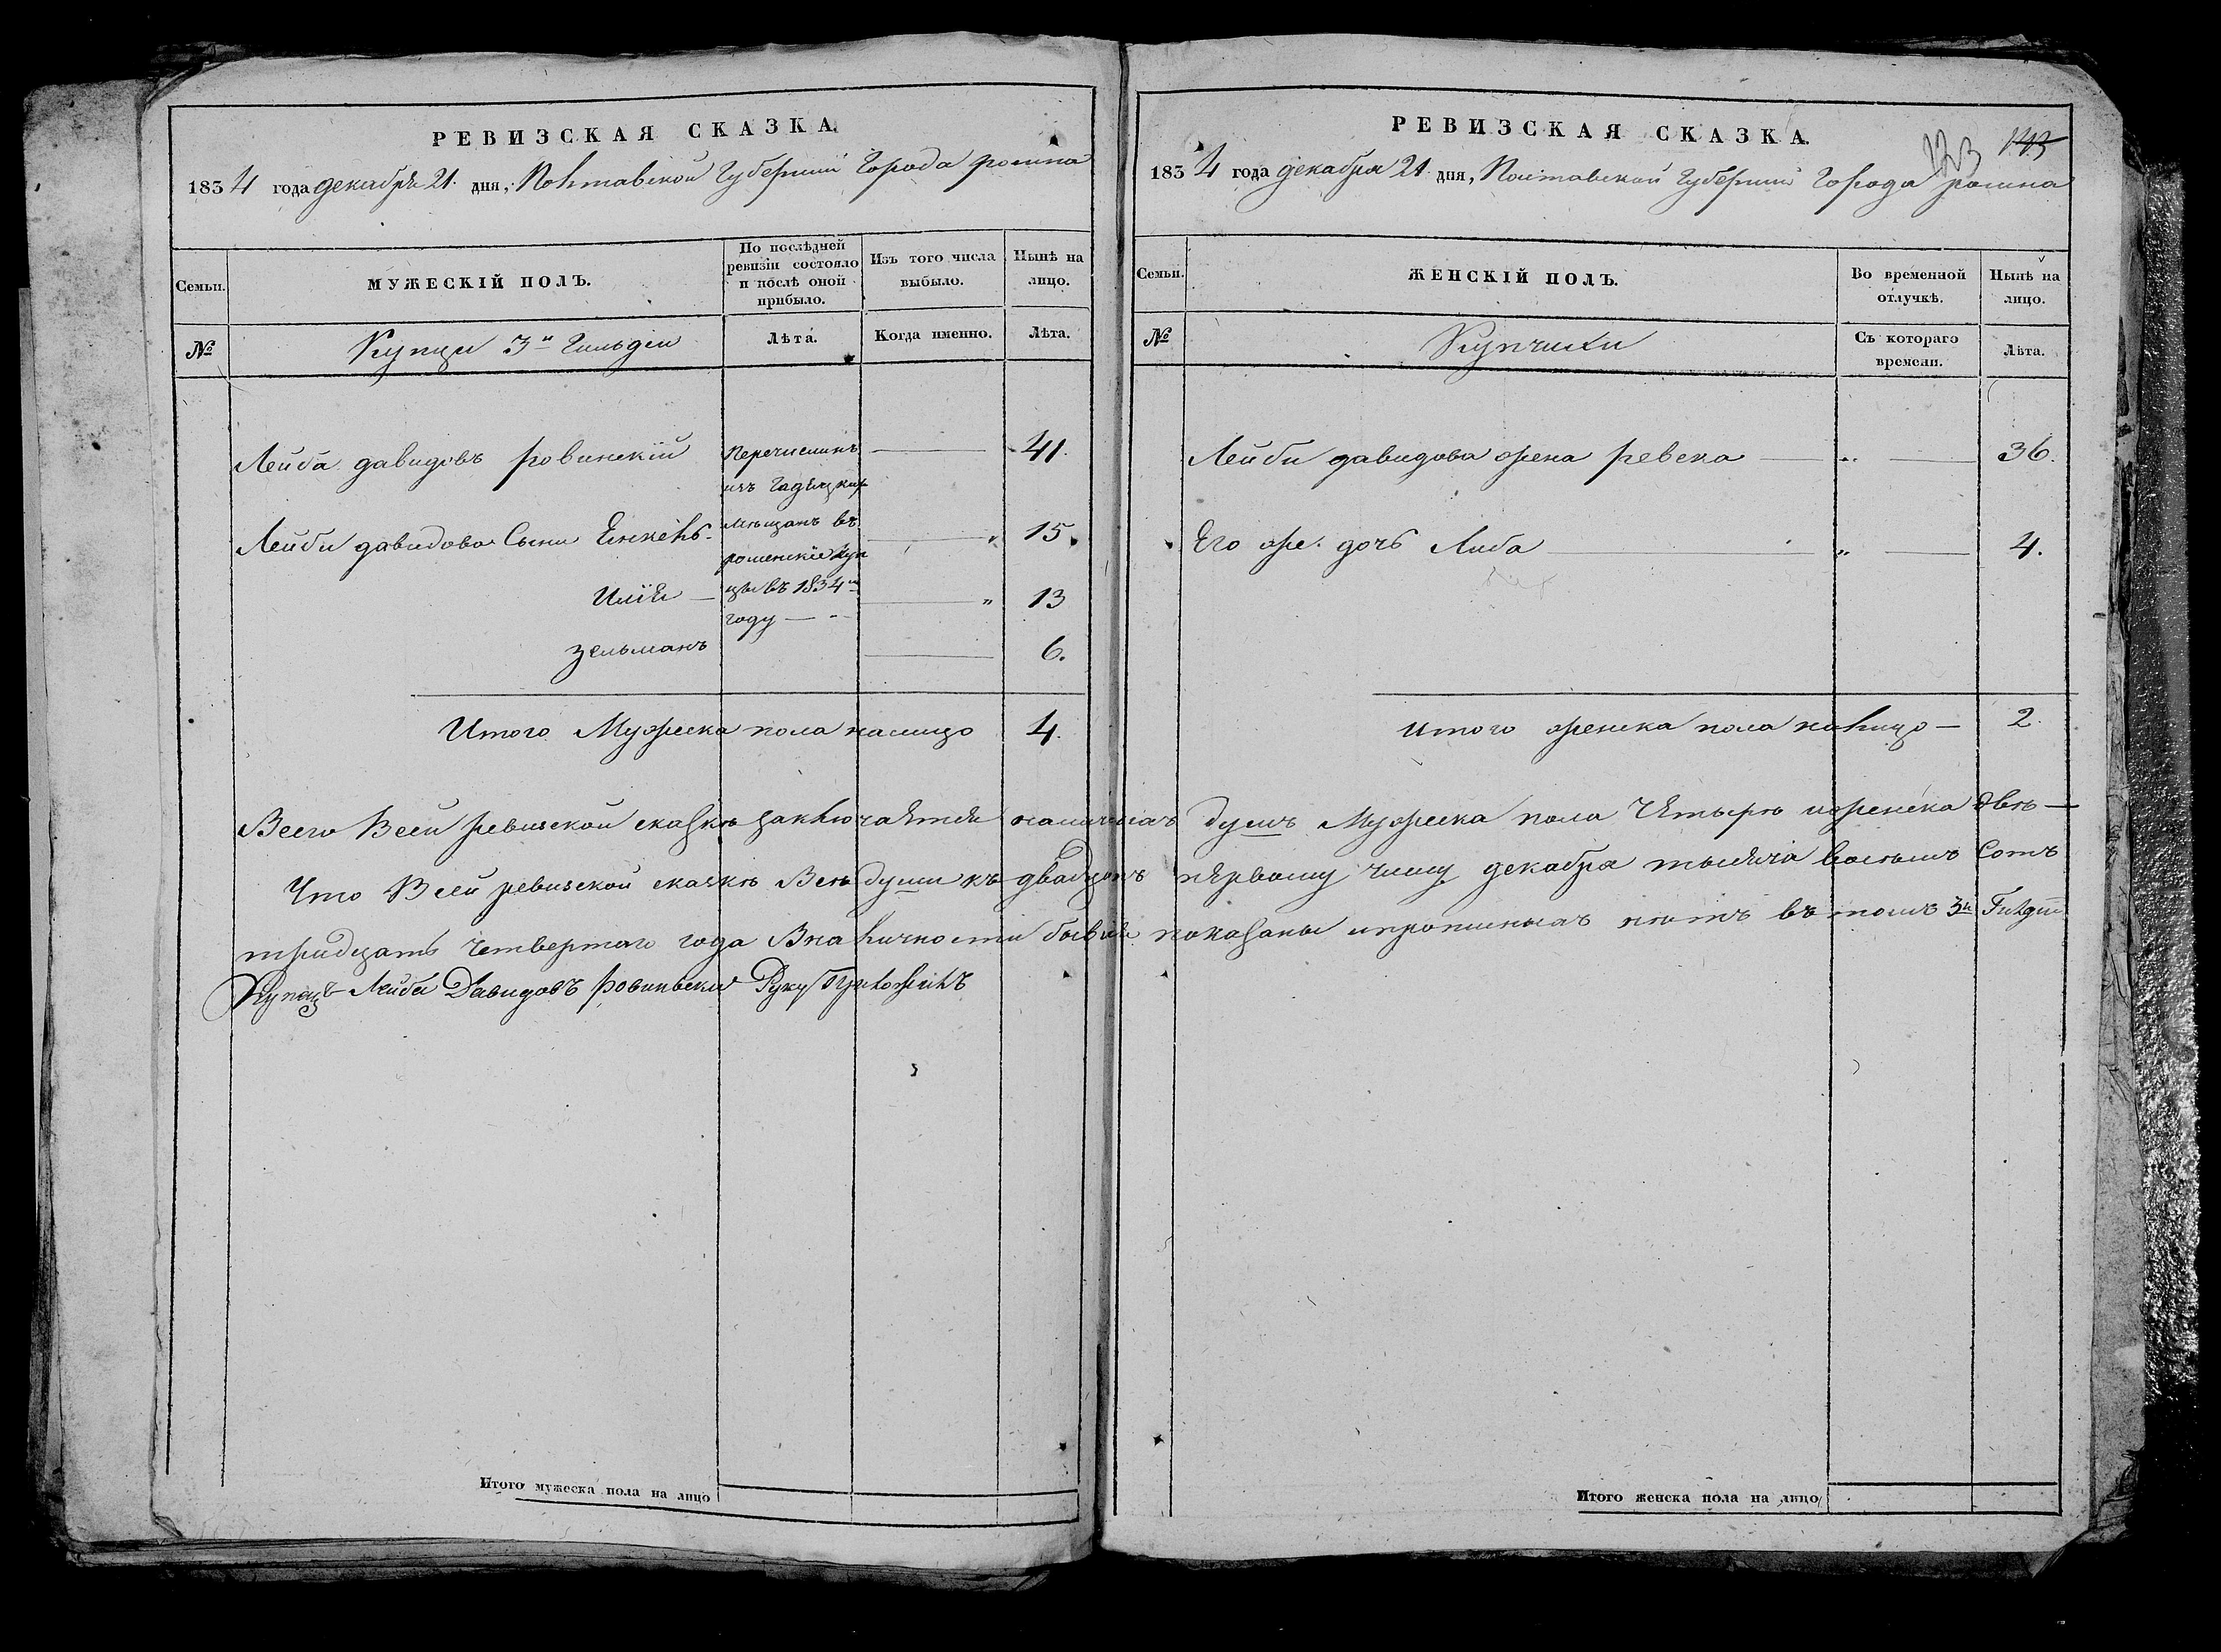 РЕВИЗСКАЯ СКАЗКА.
1834 года декабря 21. дня, Полтавской Губернии Города ромна
Семьи.
МУЖЕСКІЙ ПОЛЪ.
По послѣдней ревизіи состояло и послѣ оной прибыло.
Изъ того числа выбыло.
Нынѣ на лицо.
№
Купцы 3й Гильдіи
Лѣта.
Когда именно.
Лѣта.
Лейба давидовъ ровинскій
41.
Перечислинъ
изъ Гадяцких
мѣщанъ въ
роменскіе куп
цы въ 1834м
году
Лейби давидова Сыни Енкель
15.
Илія
13
зельманъ
6.
Итого Мужеска пола налицо 4.
РЕВИЗСКАЯ СКАЗКА.
123 143
1834 года декабря 21 дня, Полтавской Губернии Города ромна
Семьи.
ЖЕНСКІЙ ПОЛЪ.
Во временной отлучкѣ.
Нынѣ на лицо.
№
Купчихи
Съ котораго времени.
Лѣта.
Лейби давидова жена ревека 36.
Его же дочь Либа 4.
итого женска пола налицо 2.
Всего Всей ревизской сказкѣ заключается наличныхъ душъ Мужеска пола Четырѣ иженска двѣ
Что Всей ревизской сказкѣ Всѣ души къ двадцать первому числу декабря тысяча восѣмъ Сотъ
тридцать четвертого года Вналичности бывіе показаны ипрописныхъ нѣтъ въ томъ 3й Гилдіи
Купецъ Лейба Давидовъ ровиньски Руку Приложилъ
Итого мужеска пола на лицо
Итого женска пола на лицо